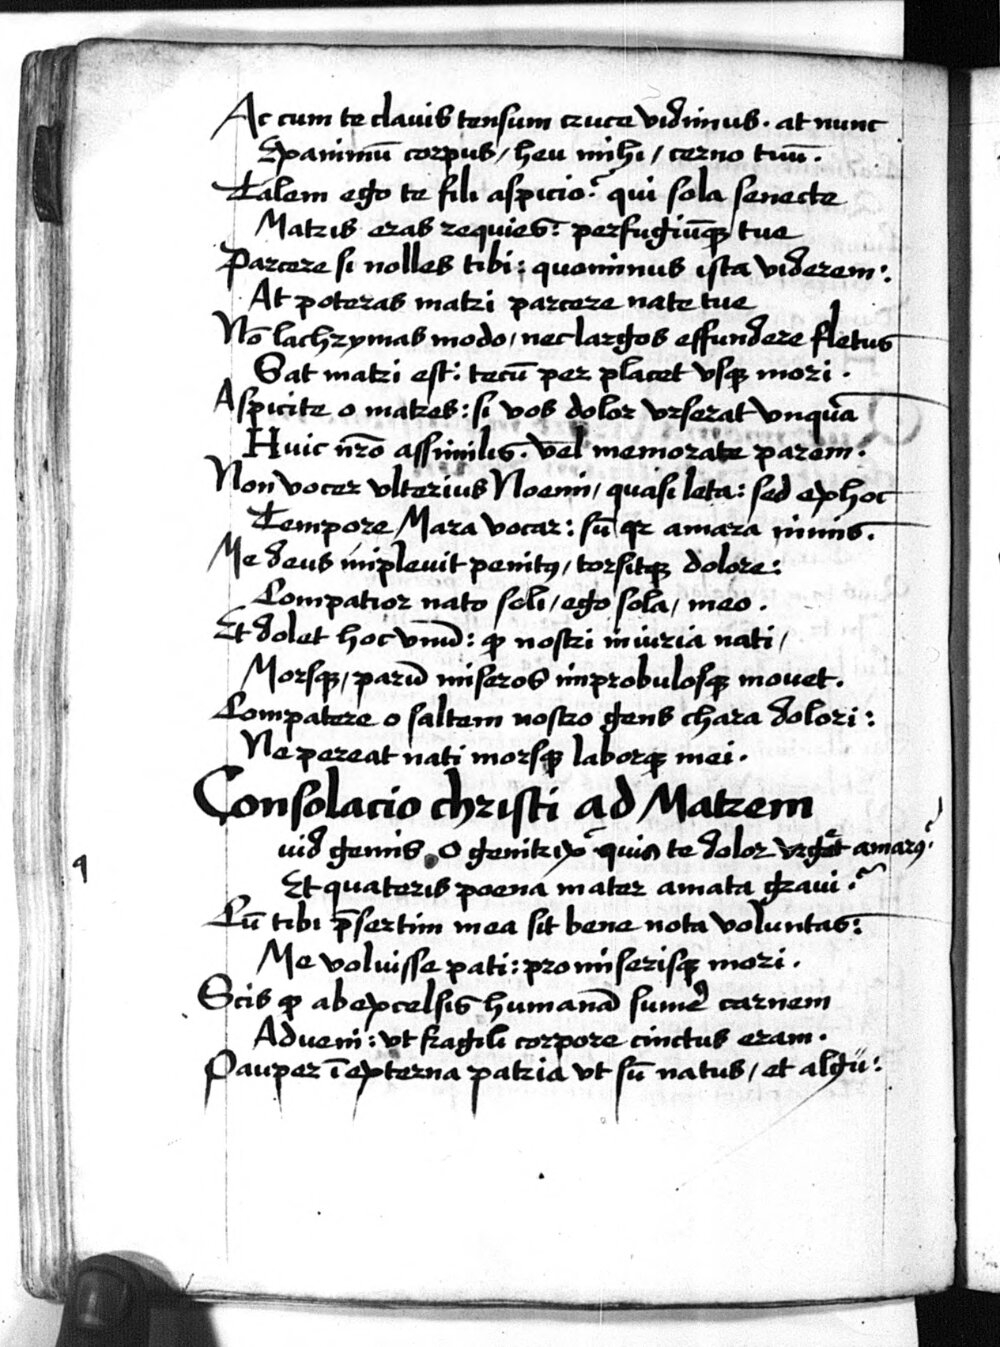 Ac cum te clavis tensum cruce vidimus. at nunc
Exanimū corpus / heu mihi / cerno tuū.
Talem ego te fili aspicio? qui sola senecte
Matris eras requies: perfugiūq; tue
Parcere si nolles tibi: quominus ista viderem:
At poteras matri parcere nate tue
Nō lachrymas modo / nec largos effundere fletus
Sat matri est: tecū per placet vsq; mori.
Aspicite o matres: si vos dolor vrserat vnquā
Huic nr̄o assimilis. vel memorate parem.
Non vocer vlterius Noemi / quasi leta: sed ex hoc
Tempore Mara vocar: sū qr amara nimis.
Me deus implevit penitꝯ / torsitq; dolore:
Compatior nato soli / ego sola / meo.
Et dolet hoc vnū: ꝙ nostri iniuria nati /
Morsq; / parū miseros improbulosq; mouet.
Compatere o saltem nostro gens chara dolori:
Ne pereat nati morsq; laborq; mei.
Consolacio christi ad Matrem
q uid gemis o genitrix? quis te dolor vrget amarꝯ?
Et quateris poena mater amata gravi?
Cū tibi p̄sertim mea sit bene nota voluntas:
Me voluisse pati: pro miserisq; mori.
Scis ꝙ ab excelsis humanā sumē carnem
Adveni: vt fragili corpore cinctus eram.
Pauper ī externa patria vt sū natus / et algū: